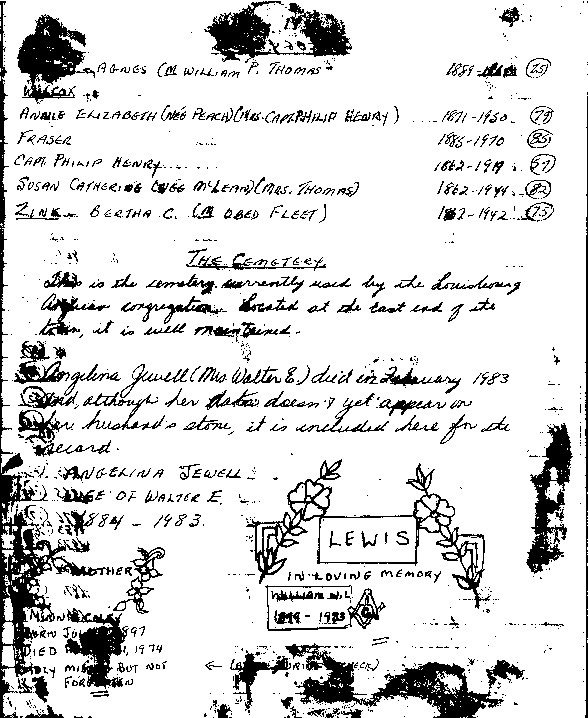 AGNES (M WILLIAM P. THOMAS 1889- (75)
WILCOX
ANNIE ELIZABETH (NÉE PEACH)(MRS. CAPT. PHILIP HENRY) 1871-1950 (79)
FRASER 1885-1970 (85)
CAPT. PHILIP HENRY 1862-1919 (57)
SUSAN CATHERINE (NÉE McLEAN)(MRS. THOMAS) 1862-1944 (82)
ZINK - BERTHA C. (M OBED FLEET) -1942 (75)
THE CEMETERY
This is the cemetery currently used by the Louisbourg
Anglican congregation. Located at the east end of the
town, it is well maintained.
Angelina Jewell (Mrs Walter E.) died in February 1983
and, although her data doesn't yet appear on
her husband's stone, it is included here for the
record.
ANGELINA JEWELL
OF WALTER E.
1884 - 1983.
LEWIS
IN LOVING MEMORY
MOTHER
WILLIAM
1899 - 1983
G
BORN 1897
DIED 1974
MISSED BUT NOT
FORGOTTEN